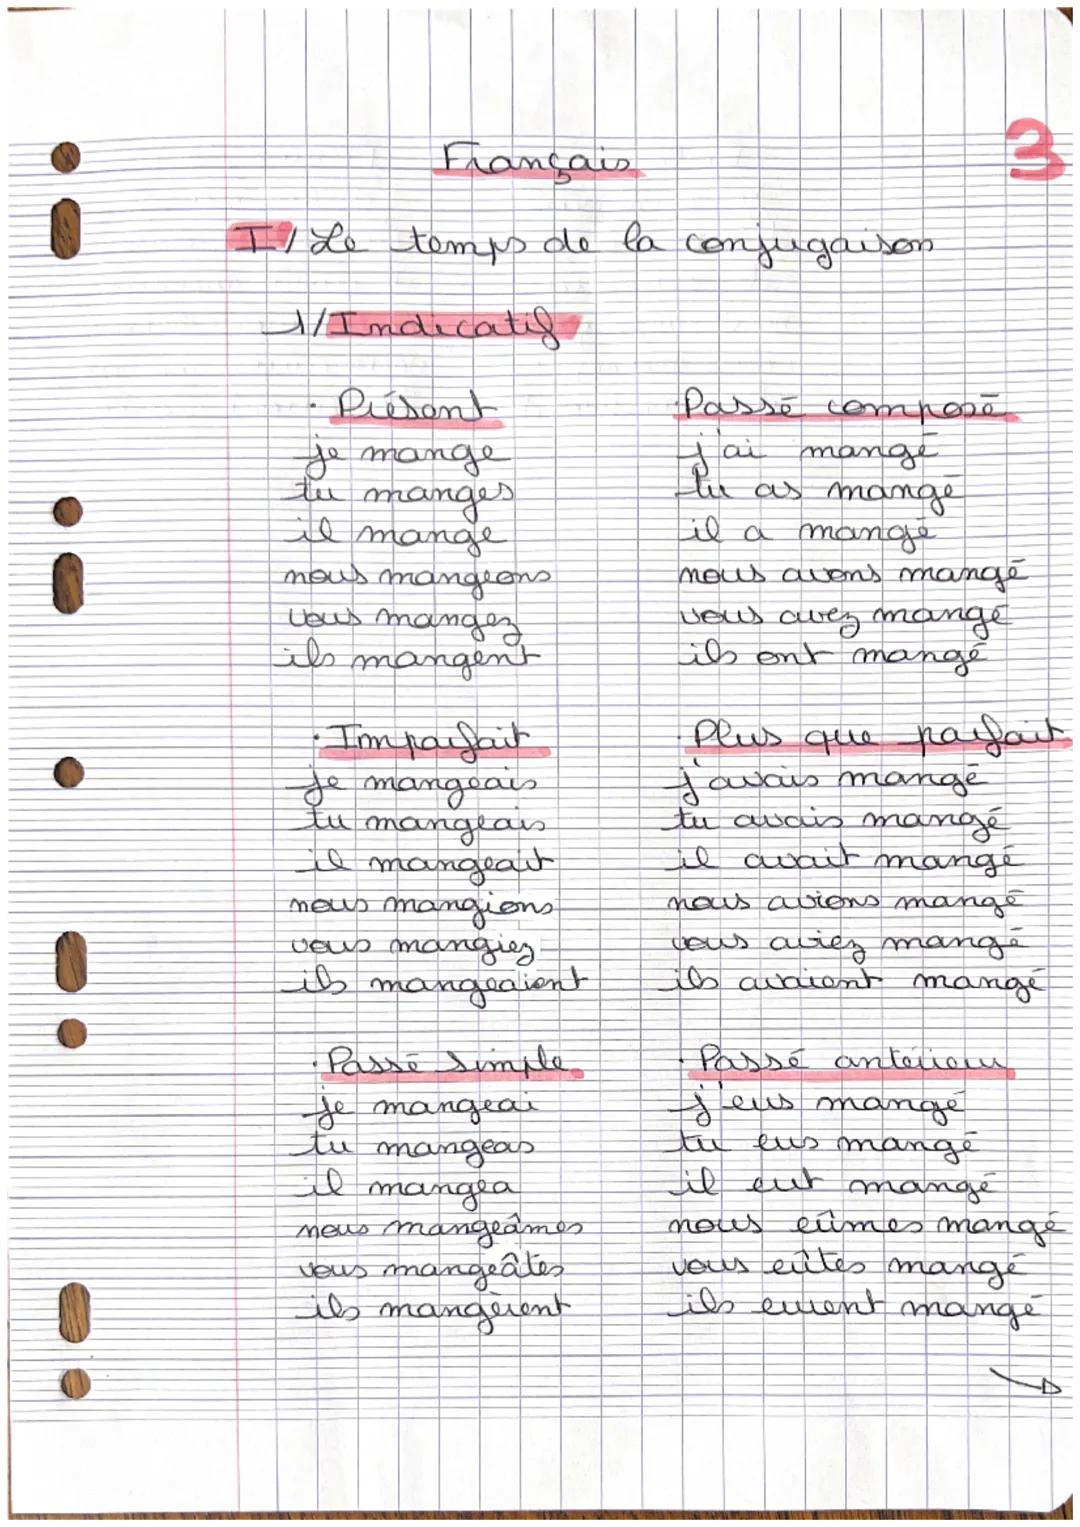 3
Français
I/ Le temps de la conjugaison
1/ Indicatif
· Présent
je mange
tu manges
il mange
nous mangeons
vous mangez
ils mangent
· Passé composé
j'ai mangé
tu as mangé
il a mangé
nous avons mangé
vous avez mangé
ils ont mangé
· Imparfait
je mangeais
tu mangeais
il mangeait
nous mangions
vous mangiez
ils mangeaient
· Plus que parfait
j'avais mangé
tu avais mangé
il avait mangé
nous avions mangé
vous aviez mangé
ils avaient mangé
· Passé simple
je mangeai
tu mangeas
il mangea
nous mangeâmes
vous mangeâtes
ils mangèrent
· Passé antérieur
j'eus mangé
tu eus mangé
il eut mangé
nous eûmes mangé
vous eûtes mangé
ils eurent mangé